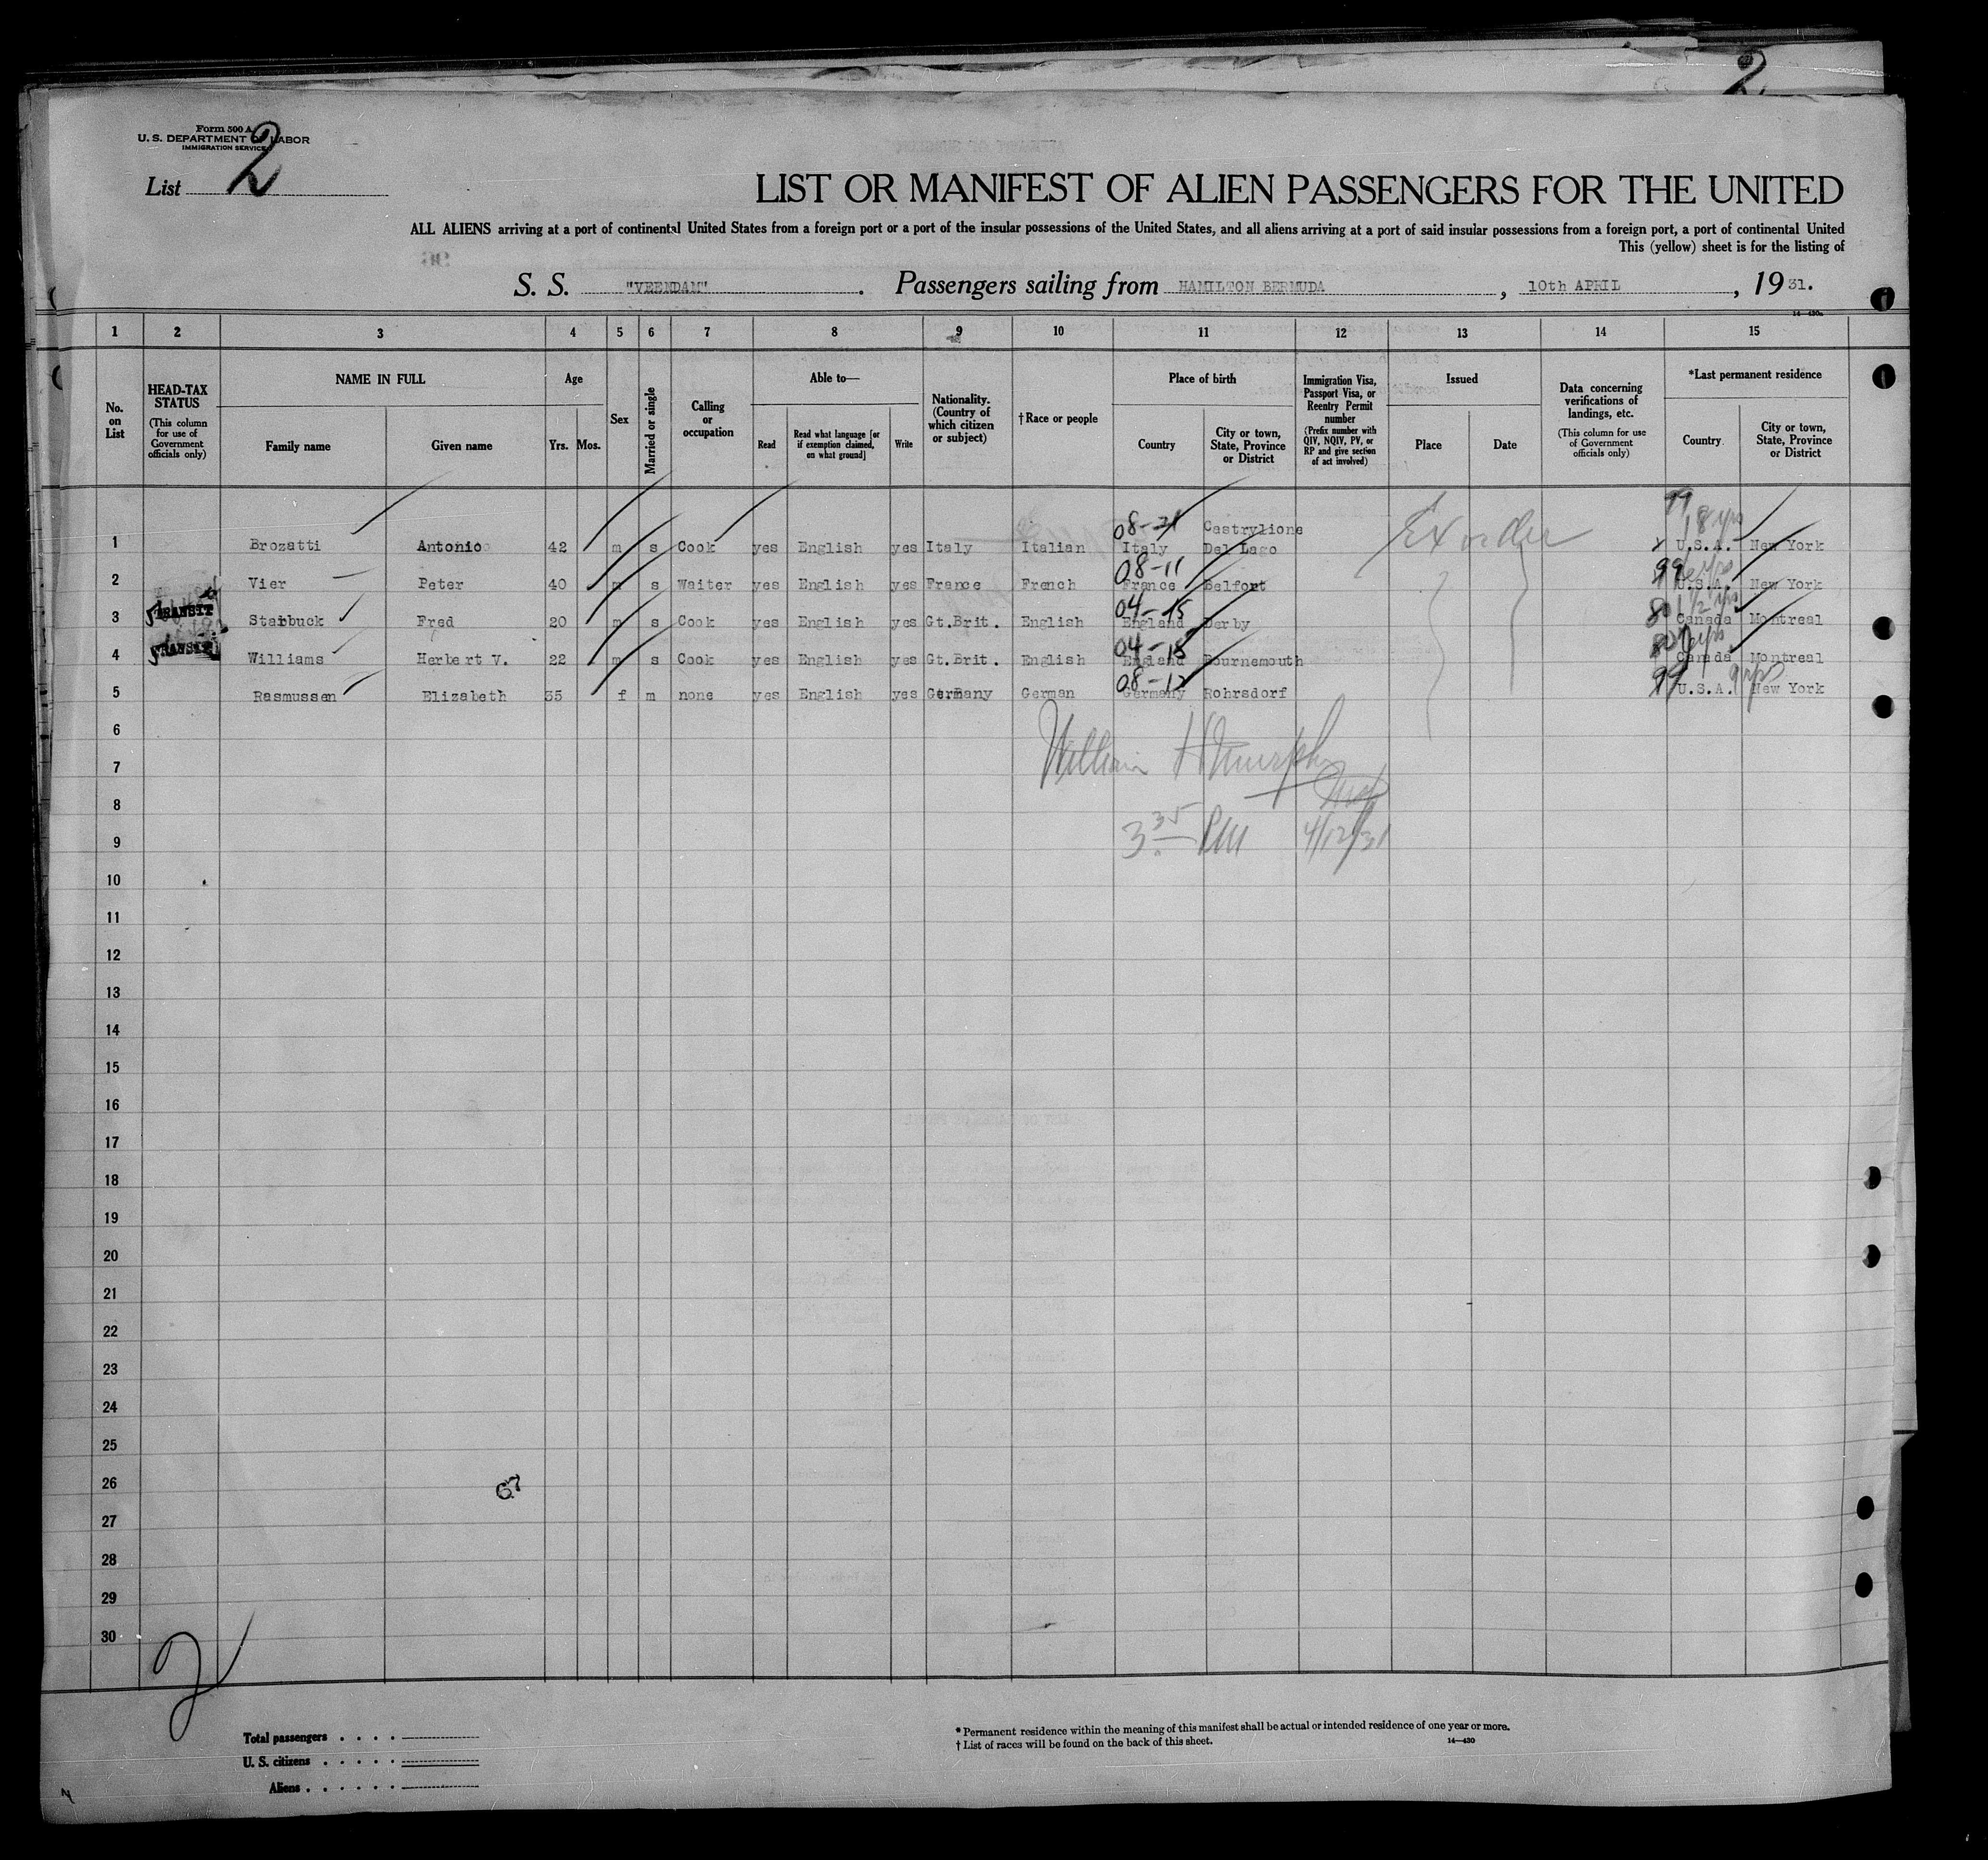 2
Form 500 A
U. S. DEPARTMENT OF LABOR
IMMIGRATION SERVICE
List 2
LIST OR MANIFEST OF ALIEN PASSENGERS FOR THE UNITED
ALL ALIENS arriving at a port of continental United States from a foreign port or a port of the insular possessions of the United States, and all aliens arriving at a port of said insular possessions from a foreign port, a port of continental United
This (yellow) sheet is for the listing of
S. S. "VEENDAM". Passengers sailing from HAMILTON BERMUDA, 10th APRIL, 1931.
14—430a
1 2 3 4 5 6 7 8 9 10 11 12 13 14 15
No. on List
HEAD-TAX STATUS
(This column for use of Government officials only)
NAME IN FULL
Family name Given name
Age
Yrs. Mos.
Sex
Married or single
Calling or occupation
Able to—
Read Read what language [or if exemption claimed, on what ground] Write
Nationality. (Country of which citizen or subject)
†Race or people
Place of birth
Country City or town, State, Province or District
Immigration Visa, Passport Visa, or Reentry Permit number
(Prefix number with QIV, NQIV, PV, or RP and give section of act involved)
Issued
Place Date
Data concerning verifications of landings, etc.
(This column for use of Government officials only)
*Last permanent residence
Country City or town, State, Province or District
08-21 Castrylione 99 18 yrs
1 Brozatti Antonio 42 m s Cook yes English yes Italy Italian Italy Del Lago Ex order x U.S.A. New York
08-11 99
2 Vier Peter 40 m s Waiter yes English yes France French France Belfort U.S.A. New York
TRANSIT 04-15
3 Starbuck Fred 20 m s Cook yes English yes Gt.Brit. English England Derby Canada Montreal
TRANSIT 04-15
4 Williams Herbert V. 22 m s Cook yes English yes Gt.Brit. English England Bournemouth Canada Montreal
08-12 99 9 yrs
5 Rasmussen Elizabeth 35 f m none yes English yes Germany German Germany Rohrsdorf U.S.A. New York
6
7 William H Murphy
8 Insp
9 3 35 PM 4/12/31
10
11
12
13
14
15
16
17
18
19
20
21
22
23
24
25
26 67
27
28
29
30
2
Total passengers
U. S. citizens
Aliens
* Permanent residence within the meaning of this manifest shall be actual or intended residence of one year or more.
† List of races will be found on the back of this sheet.
14—430